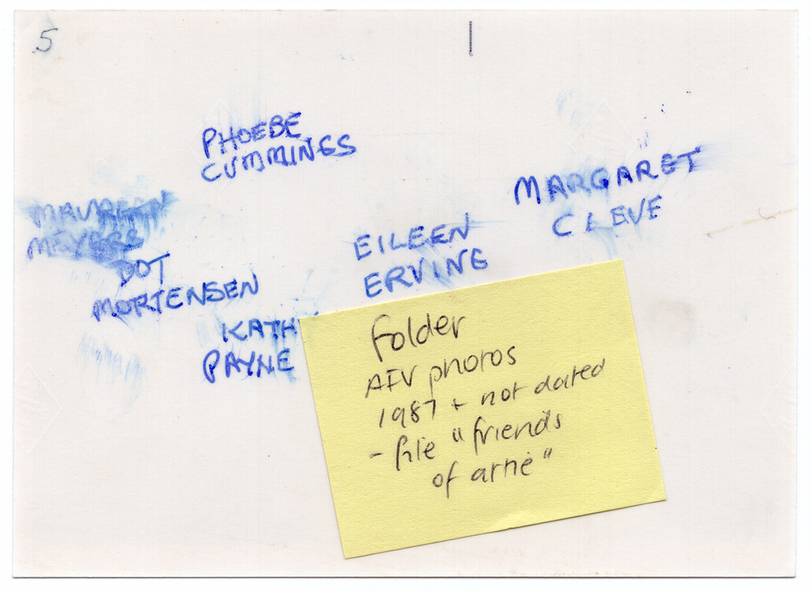 5
PHOEBE
CUMMINGS
MARGARET
CLEVE
MAUREEN
MEYERS
EILEEN
ERVING
DOT
MORTENSEN
KATH
PAYNE
folder
photos
1987 + not dated
- file "friends
of arne"